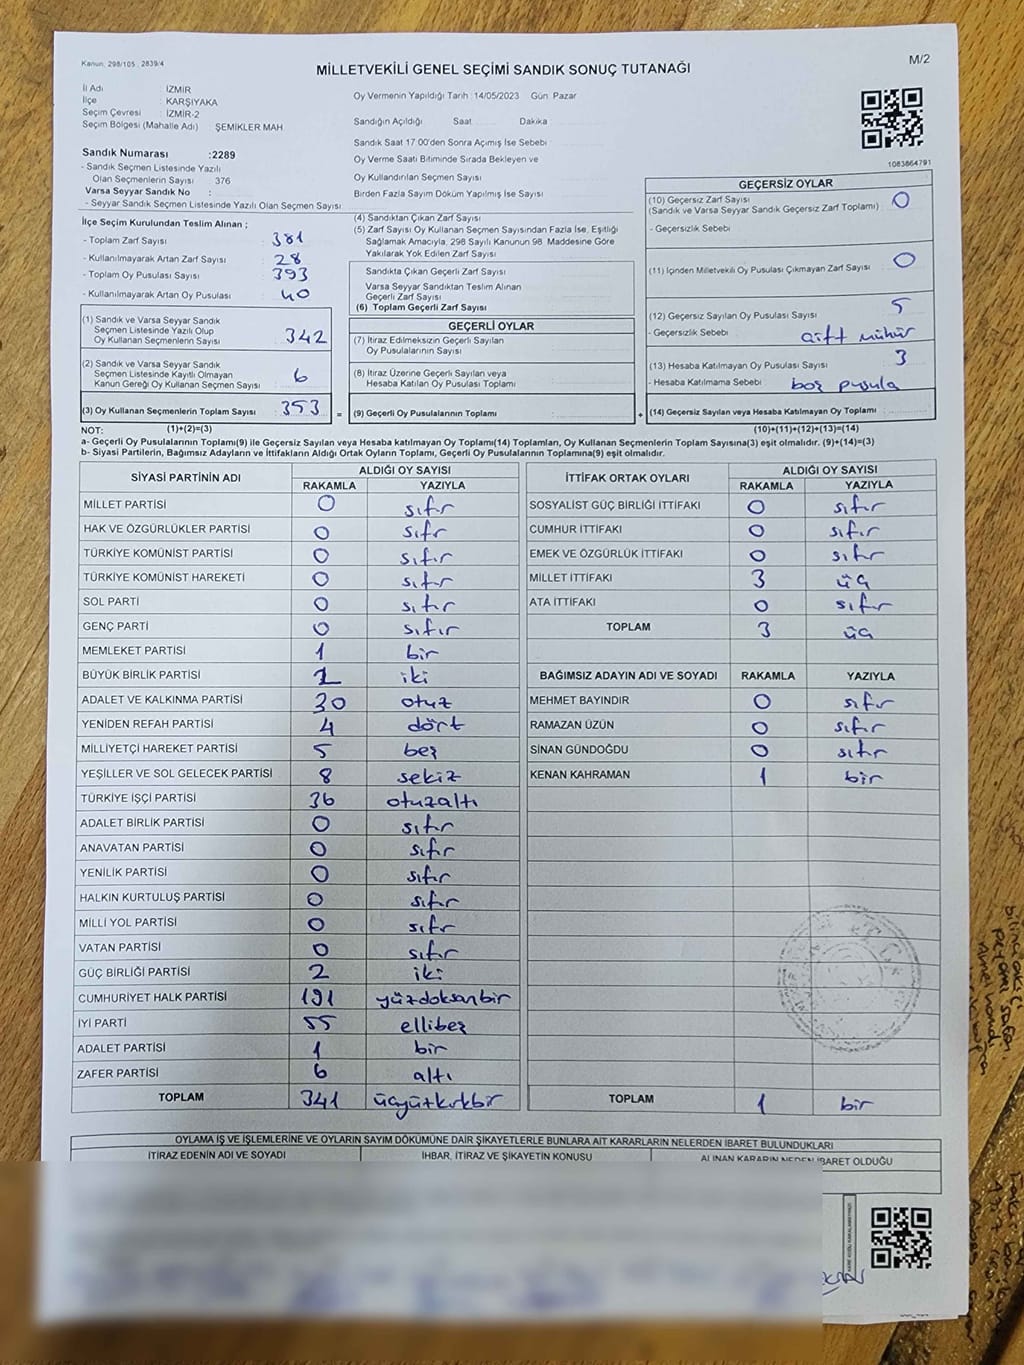 Kanun, 298/105, 2839/4
MİLLETVEKİLİ GENEL SEÇİMİ SANDIK SONUÇ TUTANAĞI
M/2
İl Adı : İZMİR
İlçe : KARŞIYAKA
Seçim Çevresi : İZMİR-2
Seçim Bölgesi (Mahalle Adı) ŞEMİKLER MAH
Sandık Numarası :2289
- Sandık Seçmen Listesinde Yazılı
Olan Seçmenlerin Sayısı : 376
Varsa Seyyar Sandık No :
- Seyyar Sandık Seçmen Listesinde Yazılı Olan Seçmen Sayısı
Oy Vermenin Yapıldığı Tarih :14/05/2023 Gün Pazar
Sandığın Açıldığı Saat Dakika
Sandık Saat 17.00'den Sonra Açımış İse Sebebi
Oy Verme Saati Bitiminde Sırada Bekleyen ve
Oy Kullandırılan Seçmen Sayısı
Birden Fazla Sayım Döküm Yapılmış İse Sayısı
1083864791
İlçe Seçim Kurulundan Teslim Alınan ;
- Toplam Zarf Sayısı : 381
- Kullanılmayarak Artan Zarf Sayısı : 28
- Toplam Oy Pusulası Sayısı : 393
- Kullanılmayarak Artan Oy Pusulası : 40
(1) Sandık ve Varsa Seyyar Sandık
Seçmen Listesinde Yazılı Olup
Oy Kullanan Seçmenlerin Sayısı : 342
(2) Sandık ve Varsa Seyyar Sandık
Seçmen Listesinde Kayıtlı Olmayan
Kanun Gereği Oy Kullanan Seçmen Sayısı : 6
(3) Oy Kullanan Seçmenlerin Toplam Sayısı : 353 =
(4) Sandıktan Çıkan Zarf Sayısı
(5) Zarf Sayısı Oy Kullanan Seçmen Sayısından Fazla İse, Eşitliği
Sağlamak Amacıyla, 298 Sayılı Kanunun 98. Maddesine Göre
Yakılarak Yok Edilen Zarf Sayısı
Sandıkta Çıkan Geçerli Zarf Sayısı
Varsa Seyyar Sandıktan Teslim Alınan
Geçerli Zarf Sayısı
(6) Toplam Geçerli Zarf Sayısı
GEÇERLİ OYLAR
(7) İtiraz Edilmeksizin Geçerli Sayılan
Oy Pusulalarının Sayısı
(8) İtiraz Üzerine Geçerli Sayılan veya
Hesaba Katılan Oy Pusulaları Toplamı
(9) Geçerli Oy Pusulalarının Toplamı +
GEÇERSİZ OYLAR
(10) Geçersiz Zarf Sayısı 0
(Sandık ve Varsa Seyyar Sandık Geçersiz Zarf Toplamı)
- Geçersizlik Sebebi
(11) İçinden Milletvekili Oy Pusulası Çıkmayan Zarf Sayısı 0
(12) Geçersiz Sayılan Oy Pusulası Sayısı 5
- Geçersizlik Sebebi çift mühür
(13) Hesaba Katılmayan Oy Pusulası Sayısı 3
- Hesaba Katılmama Sebebi boş pusula
(14) Geçersiz Sayılan veya Hesaba Katılmayan Oy Toplamı
NOT: (1)+(2)=(3) (10)+(11)+(12)+(13)=(14)
a- Geçerli Oy Pusulalarının Toplamı(9) ile Geçersiz Sayılan veya Hesaba katılmayan Oy Toplamı(14) Toplamları, Oy Kullanan Seçmenlerin Toplam Sayısına(3) eşit olmalıdır. (9)+(14)=(3)
b- Siyasi Partilerin, Bağımsız Adayların ve İttifakların Aldığı Ortak Oyların Toplamı, Geçerli Oy Pusulalarının Toplamına(9) eşit olmalıdır.
SİYASİ PARTİNİN ADI ALDIĞI OY SAYISI
RAKAMLA YAZIYLA
MİLLET PARTİSİ 0 sıfır
HAK VE ÖZGÜRLÜKLER PARTİSİ 0 sıfır
TÜRKİYE KOMÜNİST PARTİSİ 0 sıfır
TÜRKİYE KOMÜNİST HAREKETİ 0 sıfır
SOL PARTİ 0 sıfır
GENÇ PARTİ 0 sıfır
MEMLEKET PARTİSİ 1 bir
BÜYÜK BİRLİK PARTİSİ 2 iki
ADALET VE KALKINMA PARTİSİ 30 otuz
YENİDEN REFAH PARTİSİ 4 dört
MİLLİYETÇİ HAREKET PARTİSİ 5 beş
YEŞİLLER VE SOL GELECEK PARTİSİ 8 sekiz
TÜRKİYE İŞÇİ PARTİSİ 36 otuzaltı
ADALET BİRLİK PARTİSİ 0 sıfır
ANAVATAN PARTİSİ 0 sıfır
YENİLİK PARTİSİ 0 sıfır
HALKIN KURTULUŞ PARTİSİ 0 sıfır
MİLLİ YOL PARTİSİ 0 sıfır
VATAN PARTİSİ 0 sıfır
GÜÇ BİRLİĞİ PARTİSİ 2 iki
CUMHURİYET HALK PARTİSİ 191 yüzdoksanbir
İYİ PARTİ 55 ellibeş
ADALET PARTİSİ 1 bir
ZAFER PARTİSİ 6 altı
TOPLAM 341 üçyüzkırkbir
İTTİFAK ORTAK OYLARI ALDIĞI OY SAYISI
RAKAMLA YAZIYLA
SOSYALİST GÜÇ BİRLİĞİ İTTİFAKI 0 sıfır
CUMHUR İTTİFAKI 0 sıfır
EMEK VE ÖZGÜRLÜK İTTİFAKI 0 sıfır
MİLLET İTTİFAKI 3 üç
ATA İTTİFAKI 0 sıfır
TOPLAM 3 üç
BAĞIMSIZ ADAYIN ADI VE SOYADI RAKAMLA YAZIYLA
MEHMET BAYINDIR 0 sıfır
RAMAZAN ÜZÜN 0 sıfır
SİNAN GÜNDOĞDU 0 sıfır
KENAN KAHRAMAN 1 bir
TOPLAM 1 bir
OYLAMA İŞ VE İŞLEMLERİNE VE OYLARIN SAYIM DÖKÜMÜNE DAİR ŞİKAYETLERLE BUNLARA AİT KARARLARIN NELERDEN İBARET BULUNDUKLARI
İTİRAZ EDENİN ADI VE SOYADI İHBAR, İTİRAZ VE ŞİKAYETİN KONUSU ALINAN KARARIN NEDEN İBARET OLDUĞU